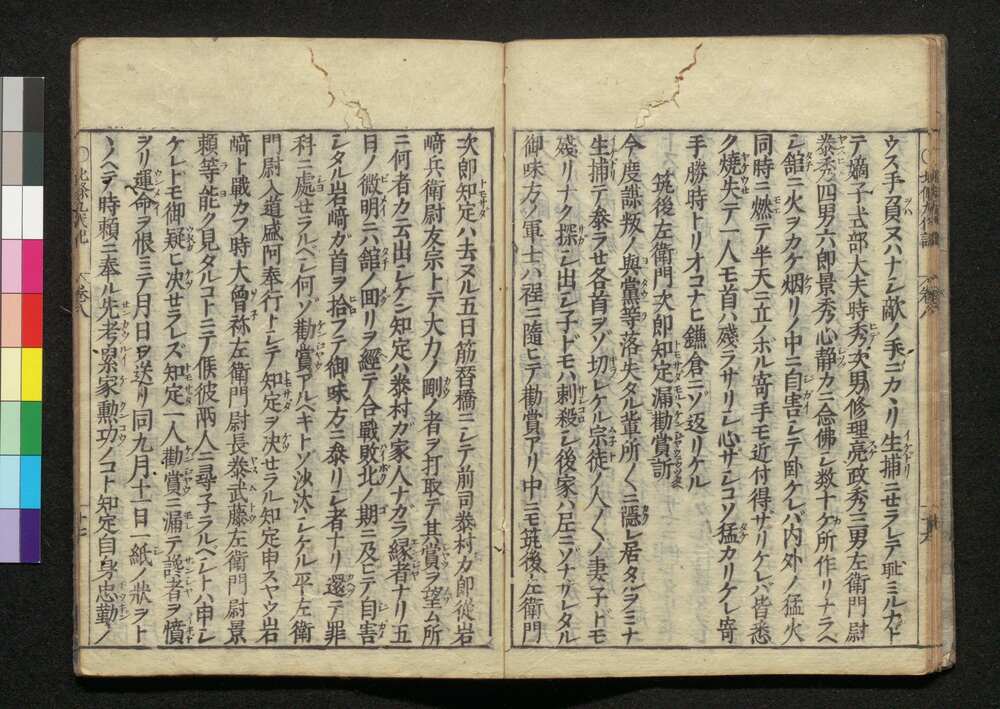 ウス手負又ハナシ敵ノ手ニカヽリ生捕ニせラレテ耻ミルナト
テ嫡子式部大夫時秀次男修理亮政秀三男左衛門尉
泰秀四男六郎景秀心静カニ念佛シ数十ケ所作リナラヘ
シ舘ニ火ヲカケ烟リノ中ニ自害シテ卧ケレバ内外ノ猛火
同時ニ燃テ半天ニ立ノボル寄手モ近付得ザリケレバ皆悉
ク燒失テ一人モ首ハ残ラサリシ心サシコソ猛カリケレ寄
手勝時トリオコナヒ鎌倉ニゾ返リケル
筑後左衛門次郎知定漏勸賞訴
今度謀叛ノ與黨等落失タル輩所〱ニ隠レ居タルヲミナ
生捕テ参ラせ各首ヲゾ切レケル宗徒ノ人〱ノ妻子ドモ
殘リナク探シ出シ子ドモハ刺殺シ後家ハ尼ニゾナサレタル
御味方ノ軍士ハ程ニ隨ヒテ勸賞アリ中ニモ筑後左衛門
次郎知定ハ去ヌル五日筋替橋ニシテ前司泰村カ郎従岩
﨑兵衛尉友宗トテ大力ノ剛者ヲ打取テ其賞ヲ望ム所
ニ何者カ云出シケン知定ハ泰村ガ家人ナガラ縁者ナリ五
日ノ微明ニハ舘ノ回リヲ經テ合戰敗北ノ期ニ及ヒテ自害
シタル岩﨑ガ首ヲ拾フテ御味方ニ参リシ者ナリ還テ罪
科ニ處せラルベシ何ゾ勸賞アルヘキトゾ沙汰シケル平左衛
門尉入道盛阿奉行トシテ知定ヲ決せラル知定申スヤウ岩
﨑ト戰カフ時大曾祢左衛門尉長泰武藤左衛門尉景
頼等能ク見タルコトニテ候彼兩人ニ尋子ラルベシトハ申シ
ケレトモ御疑ヒ決せラレズ知定一人勸賞ニ漏テ讒者ヲ憤
ヲリ運命ヲ恨ミテ月日ヲ送リ同九月十一日一紙ノ狀ヲト
ヽノヘテ時頼ニ奉ル先考累家勲功ノコト知定自身忠勤ノ